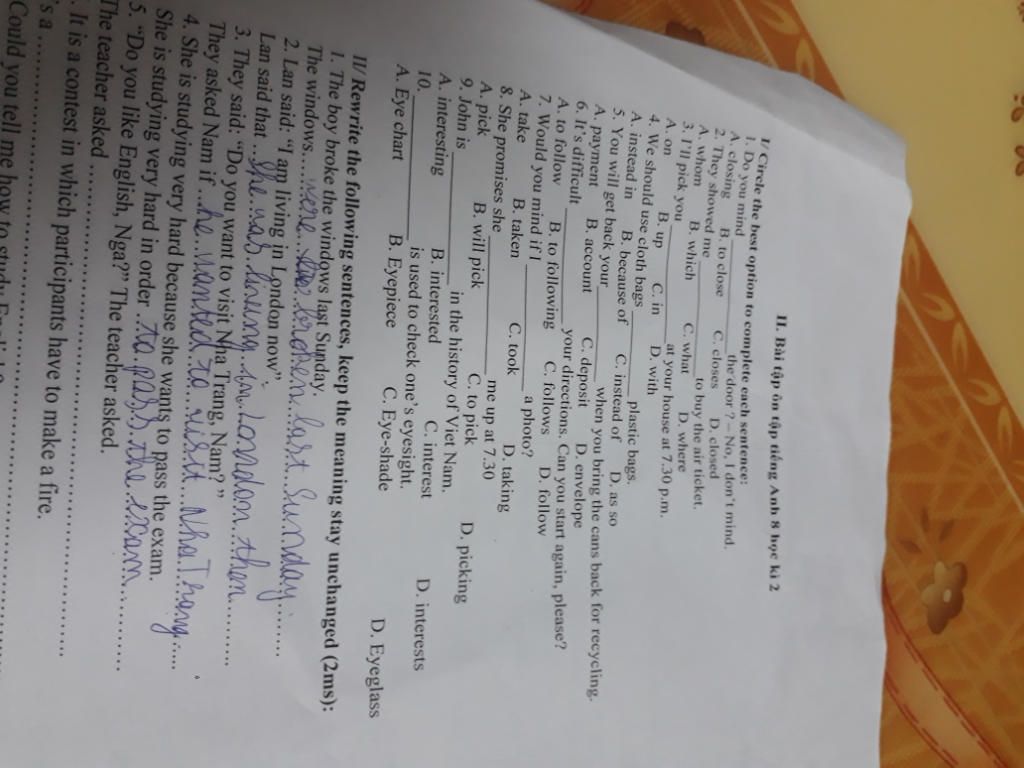 II. Bài tập ôn tập tiếng Anh 8 học kì 2
I/ Circle the best option to complete each sentence:
1. Do you mind ________ the door? – No, I don't mind.
A. closing B. to close C. closes D. closed
2. They showed me ________ to buy the air ticket.
A. whom B. which C. what D. where
3. I'll pick you ________ at your house at 7.30 p.m.
A. on B. up C. in D. with
4. We should use cloth bags ________ plastic bags.
A. instead in B. because of C. instead of D. as so
5. You will get back your ________ when you bring the cans back for recycling.
A. payment B. account C. deposit D. envelope
6. It's difficult ________ your directions. Can you start again, please?
A. to follow B. to following C. follows D. follow
7. Would you mind if I ________ a photo?
A. take B. taken C. took D. taking
8. She promises she ________ me up at 7.30
A. pick B. will pick C. to pick D. picking
9. John is ________ in the history of Viet Nam.
A. interesting B. interested C. interest D. interests
10. ________ is used to check one's eyesight.
A. Eye chart B. Eyepiece C. Eye-shade D. Eyeglass
II/ Rewrite the following sentences, keep the meaning stay unchanged (2ms):
1. The boy broke the windows last Sunday.
The windows.....were broken last Sunday........
2. Lan said: "I am living in London now".
Lan said that ...She was living in London then.......
3. They said: "Do you want to visit Nha Trang, Nam?"
They asked Nam if ...he wanted to visit Nha Trang.....
4. She is studying very hard because she wants to pass the exam.
She is studying very hard in order to pass the exam.......
5. "Do you like English, Nga?" The teacher asked.
The teacher asked ........................
. It is a contest in which participants have to make a fire.
's a ........................
Could you tell me how to study